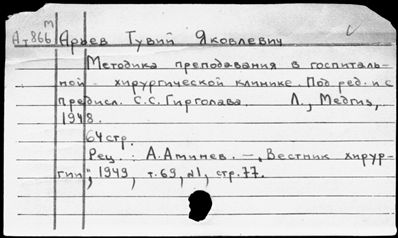 м
Ат866 Арьев Тувий Яковлевич
Методика преподавания в госпиталь-
ной хирургической клинике. Под ред. и с
предисл. С.С. Гирголава. Л., Медгиз,
1948.
64 стр.
Рец.: А. Аминев. –„Вестник хирур-
гии", 1949, т. 69, №1, стр. 77.